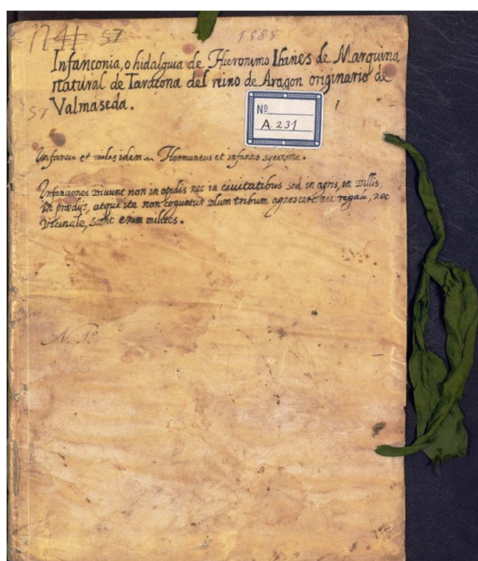 n 41 57 1585
Infançonia, o hidalguia de Hieronimo Ibañes de Marquina,
natural de Taraçona del reino de Aragon originario de
Valmaseda.
57
Nº
A. 231
Infancio et miles idem
Infançiones vivunt non in opidis nec in civitatibus sed in agris, in villis,
in prædijs, atque ita non coguntur ullum tribum agnoscere nec regale, nec
vicinale, sunt enim milites.
N. 1º